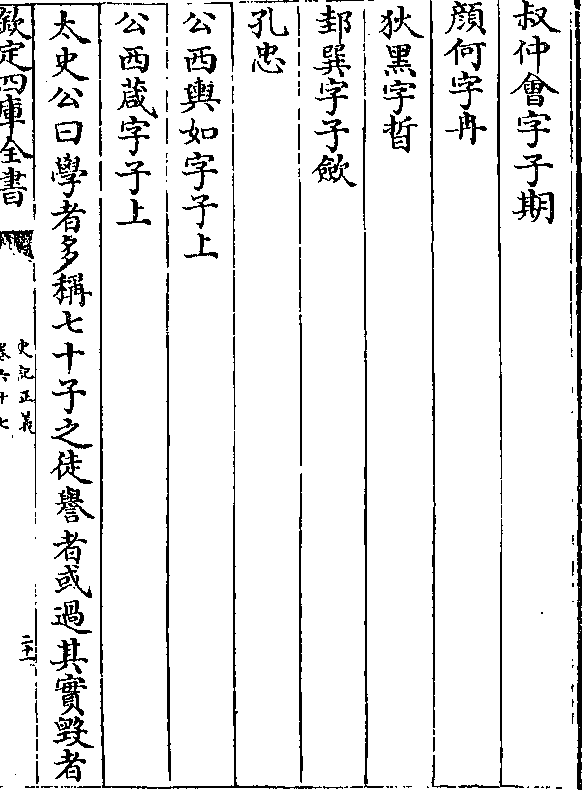 叔仲會字子期
顔何字冉
狄黒字晳
邽巽字子歛
孔忠
公西輿如字子上
公西蒧字子上
太史公曰學者多稱七十子之徒譽者或過其實毀者
欽定四庫全書
史記正義
卷六十七
二十一